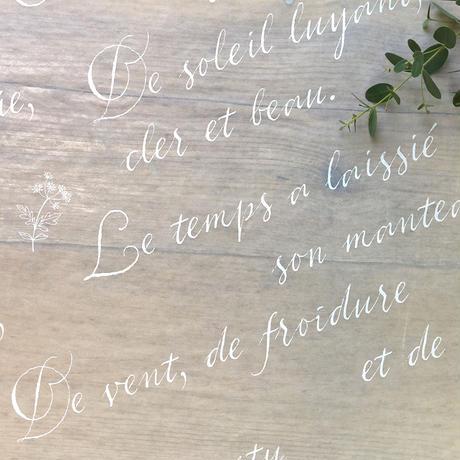 De soleil luyant,
der et beau.
Le temps a laissié
son mantea
De vent, de froidure
et de